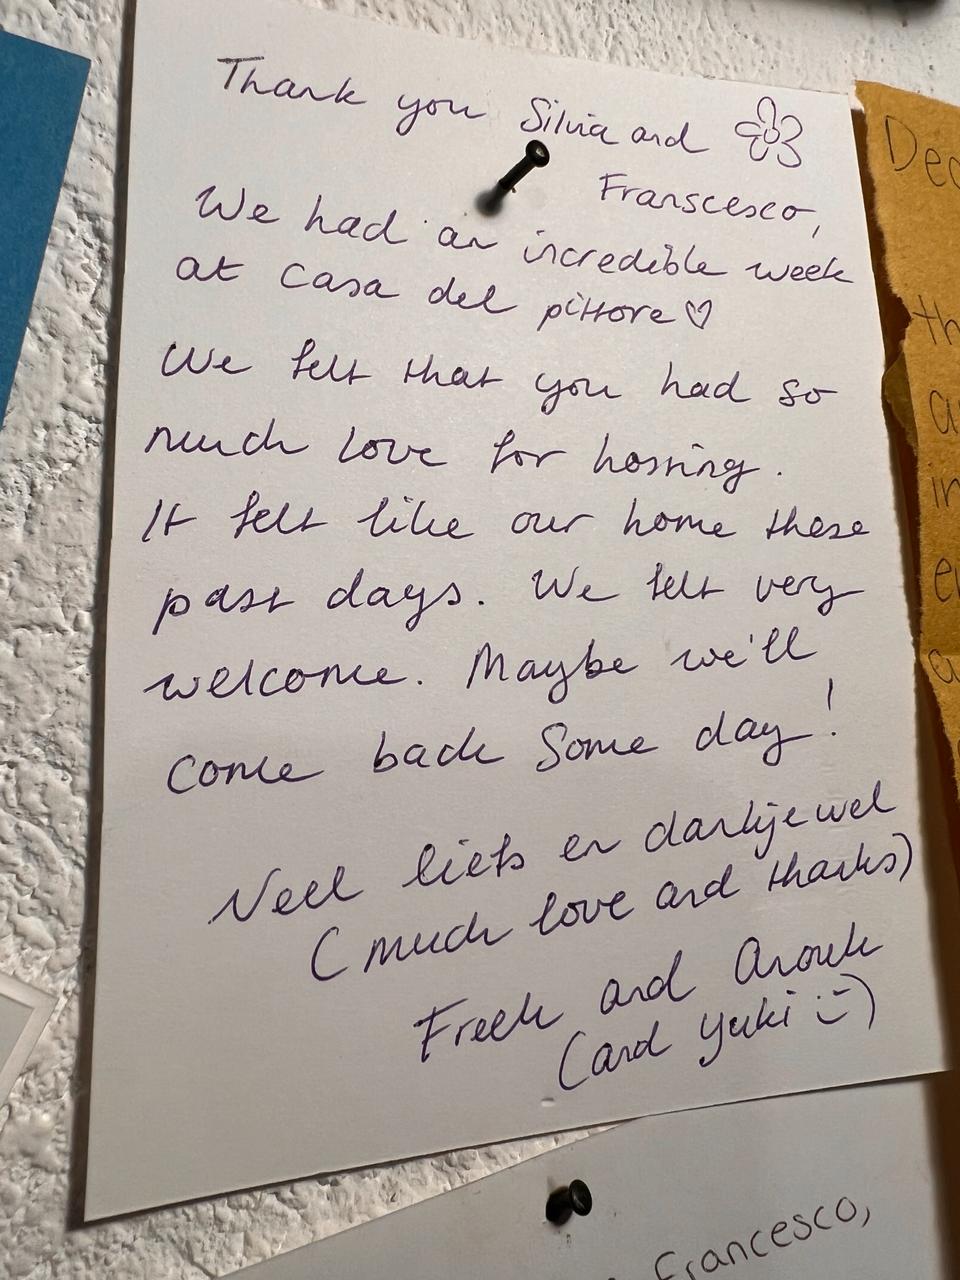 Thank you Silvia and
Franscesco,
We had an incredible week
at casa del pittore ♡
We felt that you had so
much love for hosting.
It felt like our home these
past days. We felt very
welcome. Maybe we'll
come back some day!
Veel liefs en dankjewel
(much love and thanks)
Freek and Anouk
(and Yuki :))
Francesco,
th
in